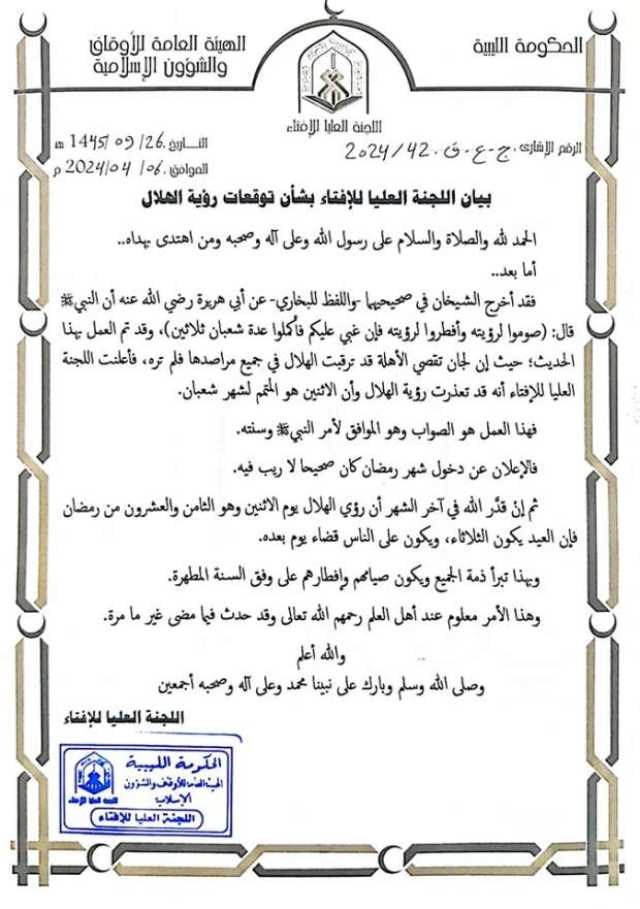 الحكومة الليبية
الهيئة العامة للأوقاف
والشؤون الإسلامية
اللجنة العليا للإفتاء
الرقم الإشاري: ج-ع-ق. 2024/42
التاريخ: 1445/09/26 هـ
الموافق: 2024/04/06 م
بيان اللجنة العليا للإفتاء بشأن توقعات رؤية الهلال
الحمد لله والصلاة والسلام على رسول الله وعلى آله وصحبه ومن اهتدى بهداه..
أما بعد..
فقد أخرج الشيخان في صحيحيهما -واللفظ للبخاري- عن أبي هريرة رضي الله عنه أن النبي ﷺ
قال: (صوموا لرؤيته وأفطروا لرؤيته فإن غبي عليكم فأكملوا عدة شعبان ثلاثين)، وقد تم العمل بهذا
الحديث؛ حيث إن لجان تقصي الأهلة قد ترقبت الهلال في جميع مراصدها فلم تره، فأعلنت اللجنة
العليا للإفتاء أنه قد تعذرت رؤية الهلال وأن الاثنين هو المتمم لشهر شعبان.
فهذا العمل هو الصواب وهو الموافق لأمر النبي ﷺ وسنته.
فالإعلان عن دخول شهر رمضان كان صحيحا لا ريب فيه.
ثم إنْ قدَّر الله في آخر الشهر أن رؤي الهلال يوم الاثنين وهو الثامن والعشرون من رمضان
فإن العيد يكون الثلاثاء، ويكون على الناس قضاء يوم بعده.
وبهذا تبرأ ذمة الجميع ويكون صيامهم وإفطارهم على وفق السنة المطهرة.
وهذا الأمر معلوم عند أهل العلم رحمهم الله تعالى وقد حدث فيما مضى غير ما مرة.
والله أعلم
وصلى الله وسلم وبارك على نبينا محمد وعلى آله وصحبه أجمعين
اللجنة العليا للإفتاء
الحكومة الليبية
الهيئة العامة للأوقاف والشؤون
الإسلامية
اللجنة العليا للإفتاء